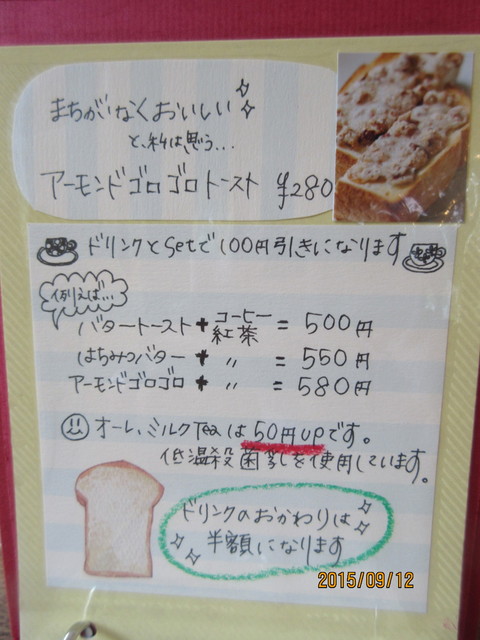 まちがいなくおいしい
と、私は思う…
アーモンドゴロゴロトースト ¥280
ドリンクとSetで100円引きになります
例えば…
バタートースト + コーヒー = 500円
紅茶
はちみつバター + 〃 = 550円
アーモンドゴロゴロ + 〃 = 580円
オーレ、ミルクTeaは50円upです。
低温殺菌乳を使用しています。
ドリンクのおかわりは
半額になります
2015/09/12